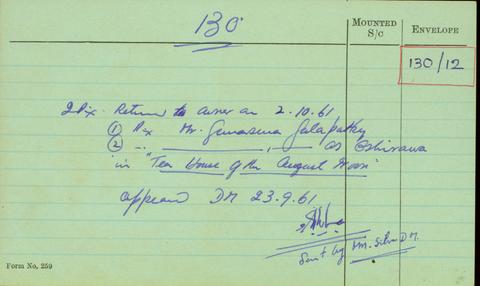 130
MOUNTED
S/C
ENVELOPE
130/12
2 Pix. Return to owner on 2.10.61
① Pix Mr. Galapathy
② -.. ———, —— as
in "Tea House of the August Moon"
appeared DM 23.9.61
Sent by Mr. Silva DM.
Form No. 259